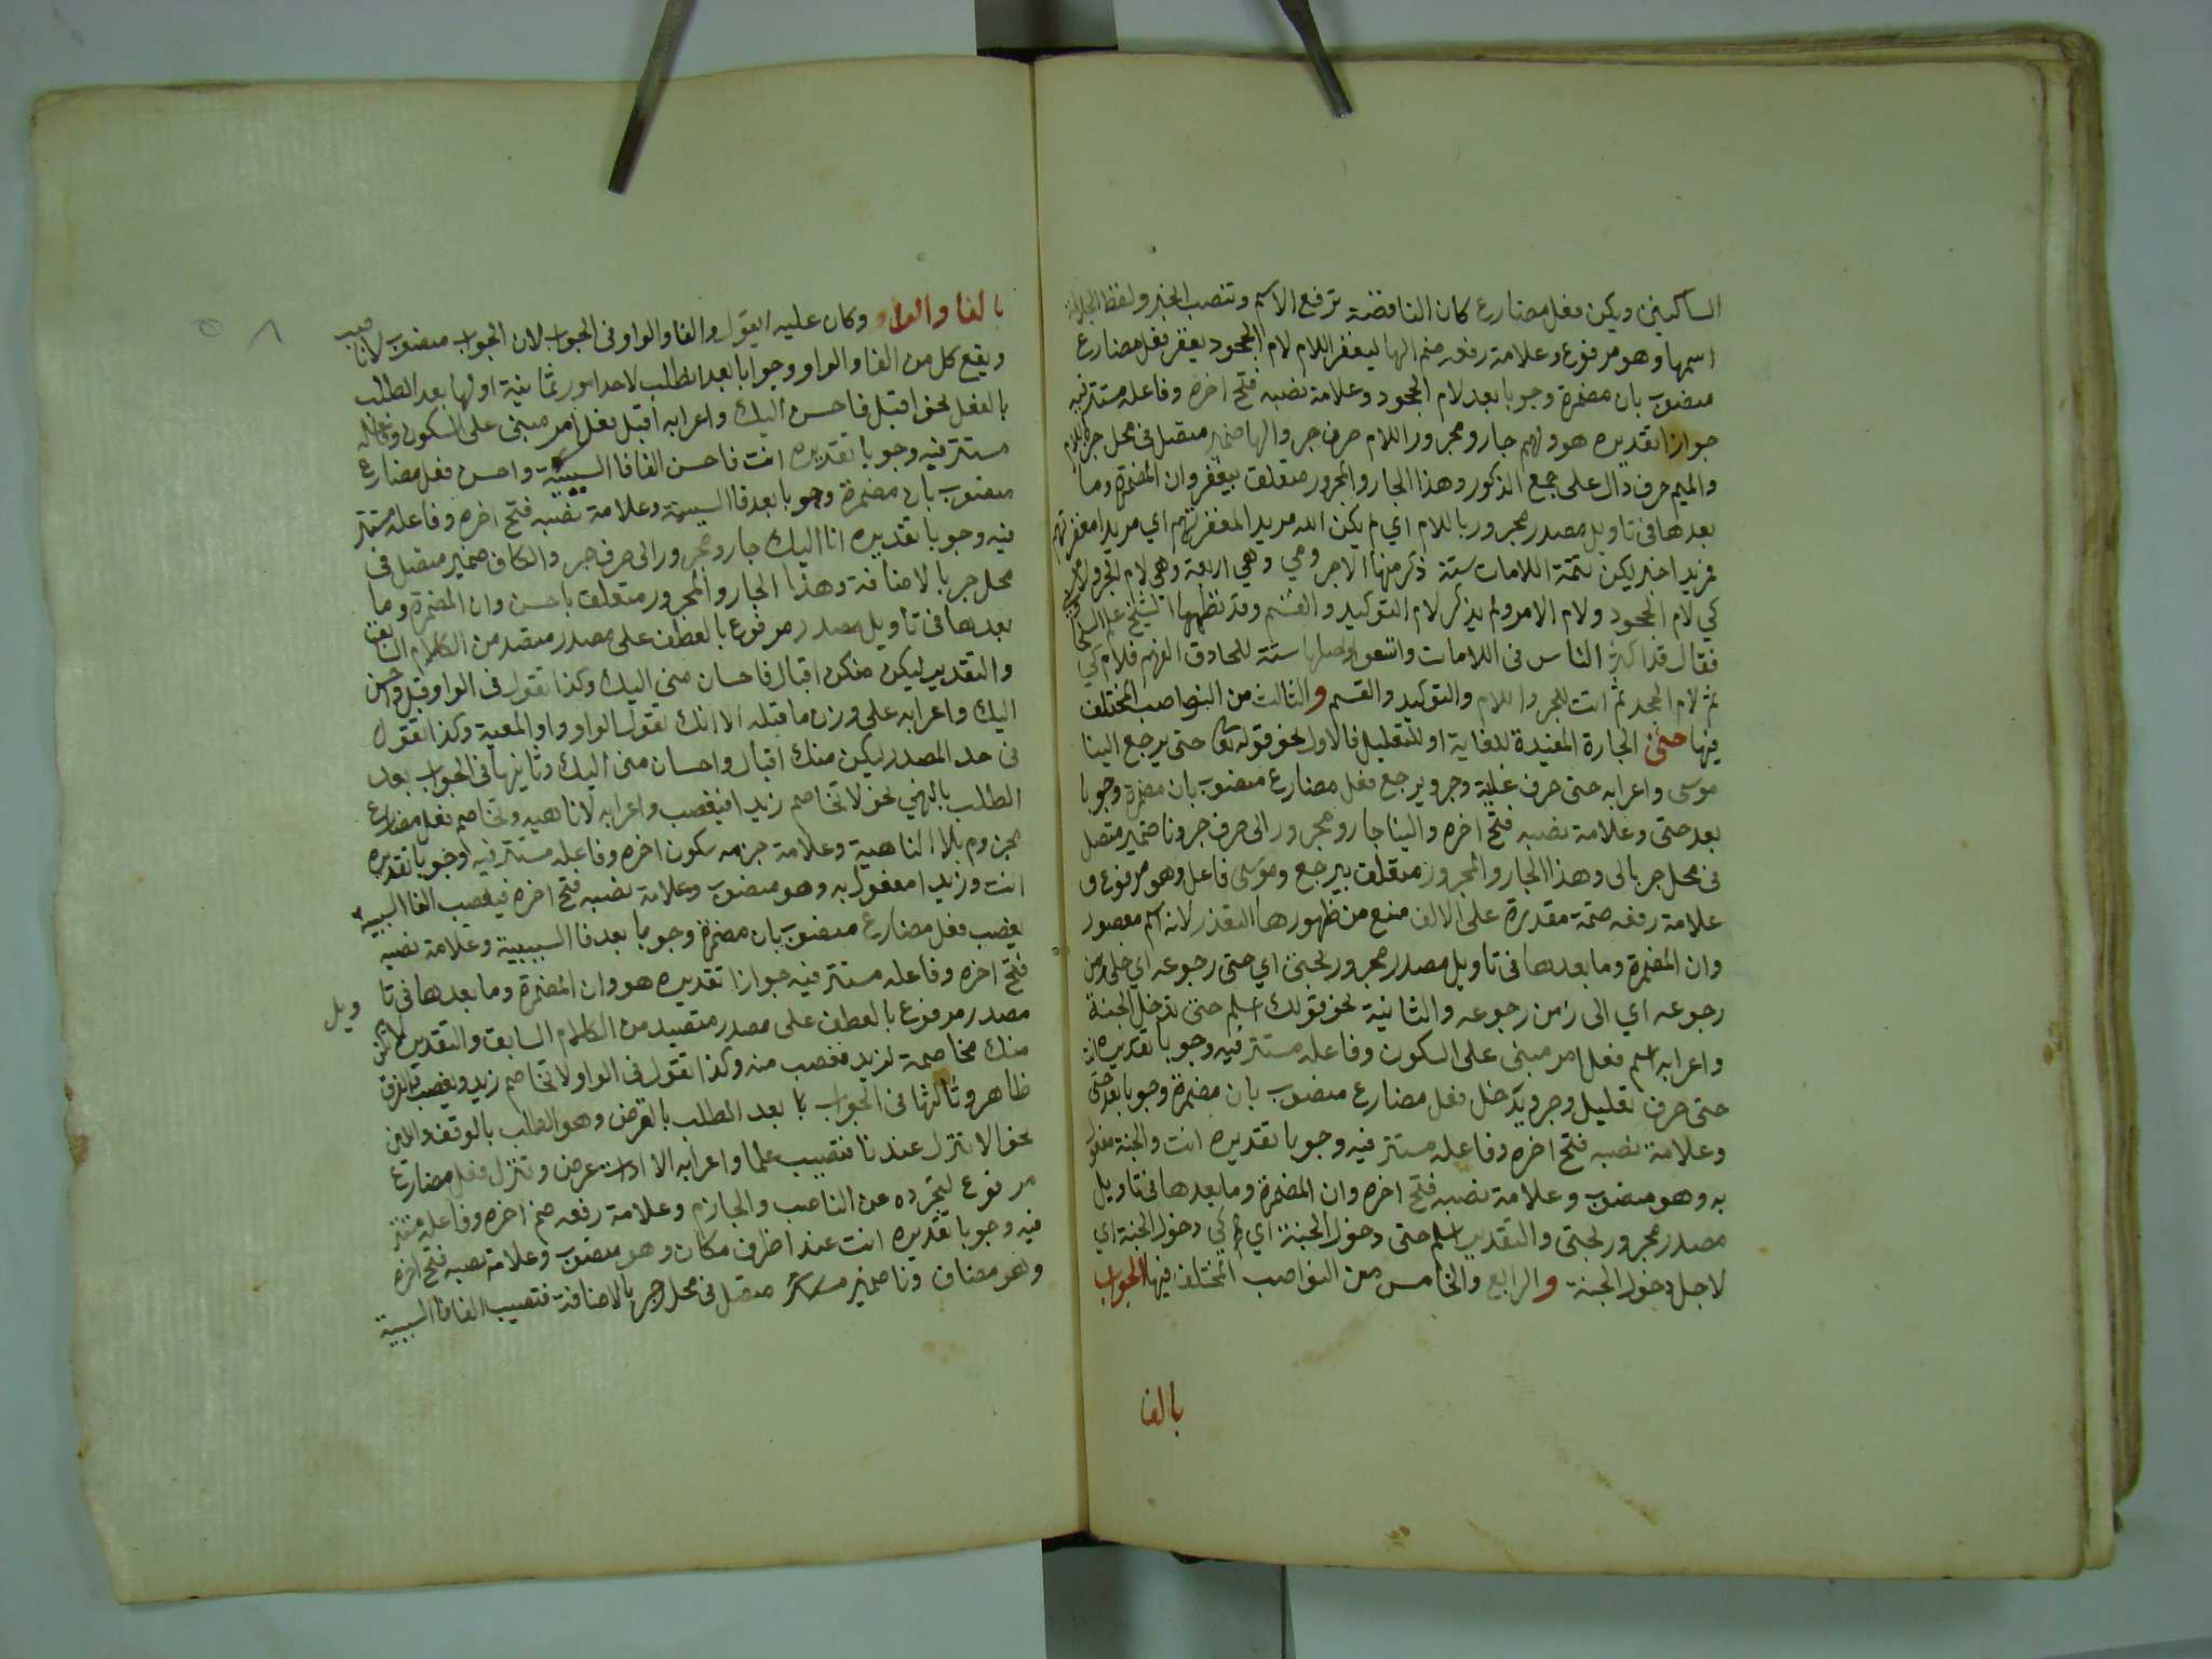 الساكنين ويكن فعل مضارع كان الناقصة ترفع الاسم وتنصب الخبر ولفظ الجلالة
اسمها وهو مرفوع وعلامة رفعه ضم الها ليغفر اللام لام الجحود يغفر فعل مضارع
منصوب بان مضمرة وجوبا بعد لام الجحود وعلامة نصبه فتح اخره وفاعله مستتر فيه
جوازا تقديره هو ولهم جار ومجرور اللام حرف جر والها ضمير متصل في محل جر باللام
والميم حرف دال على جمع الذكور وهذا الجار والمجرور متعلق بيغفر وان المضمرة وما
بعدها في تاويل مصدر مجرور باللام اي لم يكن الله مريدا لمغفرتهم اي مريدا مغفرتهم
فمريدا خبر يكن تتمة اللامات ستة ذكر منها الاجرومي وهي اربعة وهي لام الجر ولام
كي لام الجحود ولام الامر ولم يذكر لام التوكيد والقسم وقد نظمها الشيخ علم السخا
فقال قد اكثر الناس في اللامات واتسعوا واصلها ستة للحاذق الفهم فلام كي
ثم لام الجحد ثم اتت للجر واللام والتوكيد والقسم والثالث من النواصب المختلف
فيها حتى الجارة المفيدة للغاية او للتعليل فالاول نحو قوله تعا حتى يرجع الينا
موسى واعرابه حتى حرف غاية وجر ويرجع فعل مضارع منصوب بان مضمرة وجوبا
بعد حتى وعلامة نصبه فتح اخره والينا جار ومجرور الى حرف جر ونا ضمير متصل
في محل جر بالى وهذا الجار والمجرور متعلق بيرجع وموسى فاعل وهو مرفوع و
علامة رفعه ضمة مقدرة على الالف منع من ظهورها التعذر لانه اسم مقصور
وان المضمرة وما بعدها في تاويل مصدر مجرور بحتى اي حتى رجوعه اي حتى زمن
رجوعه اي الى زمن رجوعه والثانية نحو قولك اسلم حتى تدخل الجنة
واعرابه اسلم فعل امر مبني على السكون وفاعله مستتر فيه وجوبا تقديره انت
حتى حرف تعليل وجر وتدخل فعل مضارع منصوب بان مضمرة وجوبا بعد حتى
وعلامة نصبه فتح اخره وفاعله مستتر فيه وجوبا تقديره انت والجنة مفعول
به وهو منصوب وعلامة نصبه فتح اخره وان المضمرة وما بعدها في تاويل
مصدر مجرور بحتى والتقدير اسلم حتى دخول الجنة اي كي دخول الجنة اي
لاجل دخول الجنة والرابع والخامس من النواصب المختلف فيها الجواب
بالفا
بالفا والواو وكان عليه ان يقول والفا والواو في الجواب لان الجواب منصوب لا ناصب
ويقع كل من الفا والواو وجوابا بعد الطلب لاحد امور ثمانية اولها بعد الطلب
بالفعل نحو اقبل فاحسن اليك واعرابه اقبل فعل امر مبني على السكون وفاعله
مستتر فيه وجوبا تقديره انت فاحسن الفا فا السببية واحسن فعل مضارع
منصوب بان مضمرة وجوبا بعد فا السببية وعلامة نصبه فتح اخره وفاعله مستتر
فيه وجوبا تقديره انا اليك جار ومجرور الى حرف جر والكاف ضمير متصل في
محل جر بالاضافة وهذا الجار والمجرور متعلق باحسن وان المضمرة وما
بعدها في تأويل مصدر مرفوع بالعطف على مصدر متصيد من الكلام السابق
والتقدير ليكن منكن اقبال فاحسان مني اليك وكذا تقول في الواو قبل واحسن
اليك واعرابه على وزن ما قبله الا انك تقول الواو واو المعية وكذا تقول
في حد المصدر ليكن منك اقبال واحسان مني اليك وثانيها في الجواب بعد
الطلب بالنهي نحو لا تخاصم زيدا فيغضب واعرابه لا ناهيه وتخاصم فعل مضارع
مجزوم بلا الناهية وعلامة جزمه سكون اخره وفاعله مستتر فيه وجوبا تقديره
انت وزيدا مفعول به وهو منصوب وعلامة نصبه فتح اخره فيغضب الفا السببية
يغضب فعل مضارع منصوب بان مضمرة وجوبا بعد فا السببية وعلامة نصبه
فتح اخره وفاعله مستتر فيه جوازا تقديره هو وان المضمرة وما بعدها في تا ويل
مصدر مرفوع بالعطف على مصدر متصيد من الكلام السابق والتقدير لا يكن
منك مخاصمة لزيد فغضب منه وكذا تقول في الواو لا تخاصم زيد ويغضب فالفرق
ظاهر وثالثها في الجواب بعد الطلب بالعرض وهو الطلب بالوقف واللين
نحو الا تنزل عندنا فتصيب علما واعرابه الا اداة عرض وتنزل فعل مضارع
مرفوع لتجرده عن الناصب والجازم وعلامة رفعه ضم اخره وفاعله مستتر
فيه وجوبا تقديره انت عند اظرف مكان وهو منصوب وعلامة نصبه فتح اخره
وهو مضاف ونا ضمير متصل في محل جر بالاضافة فتصيب الفا فا السببية